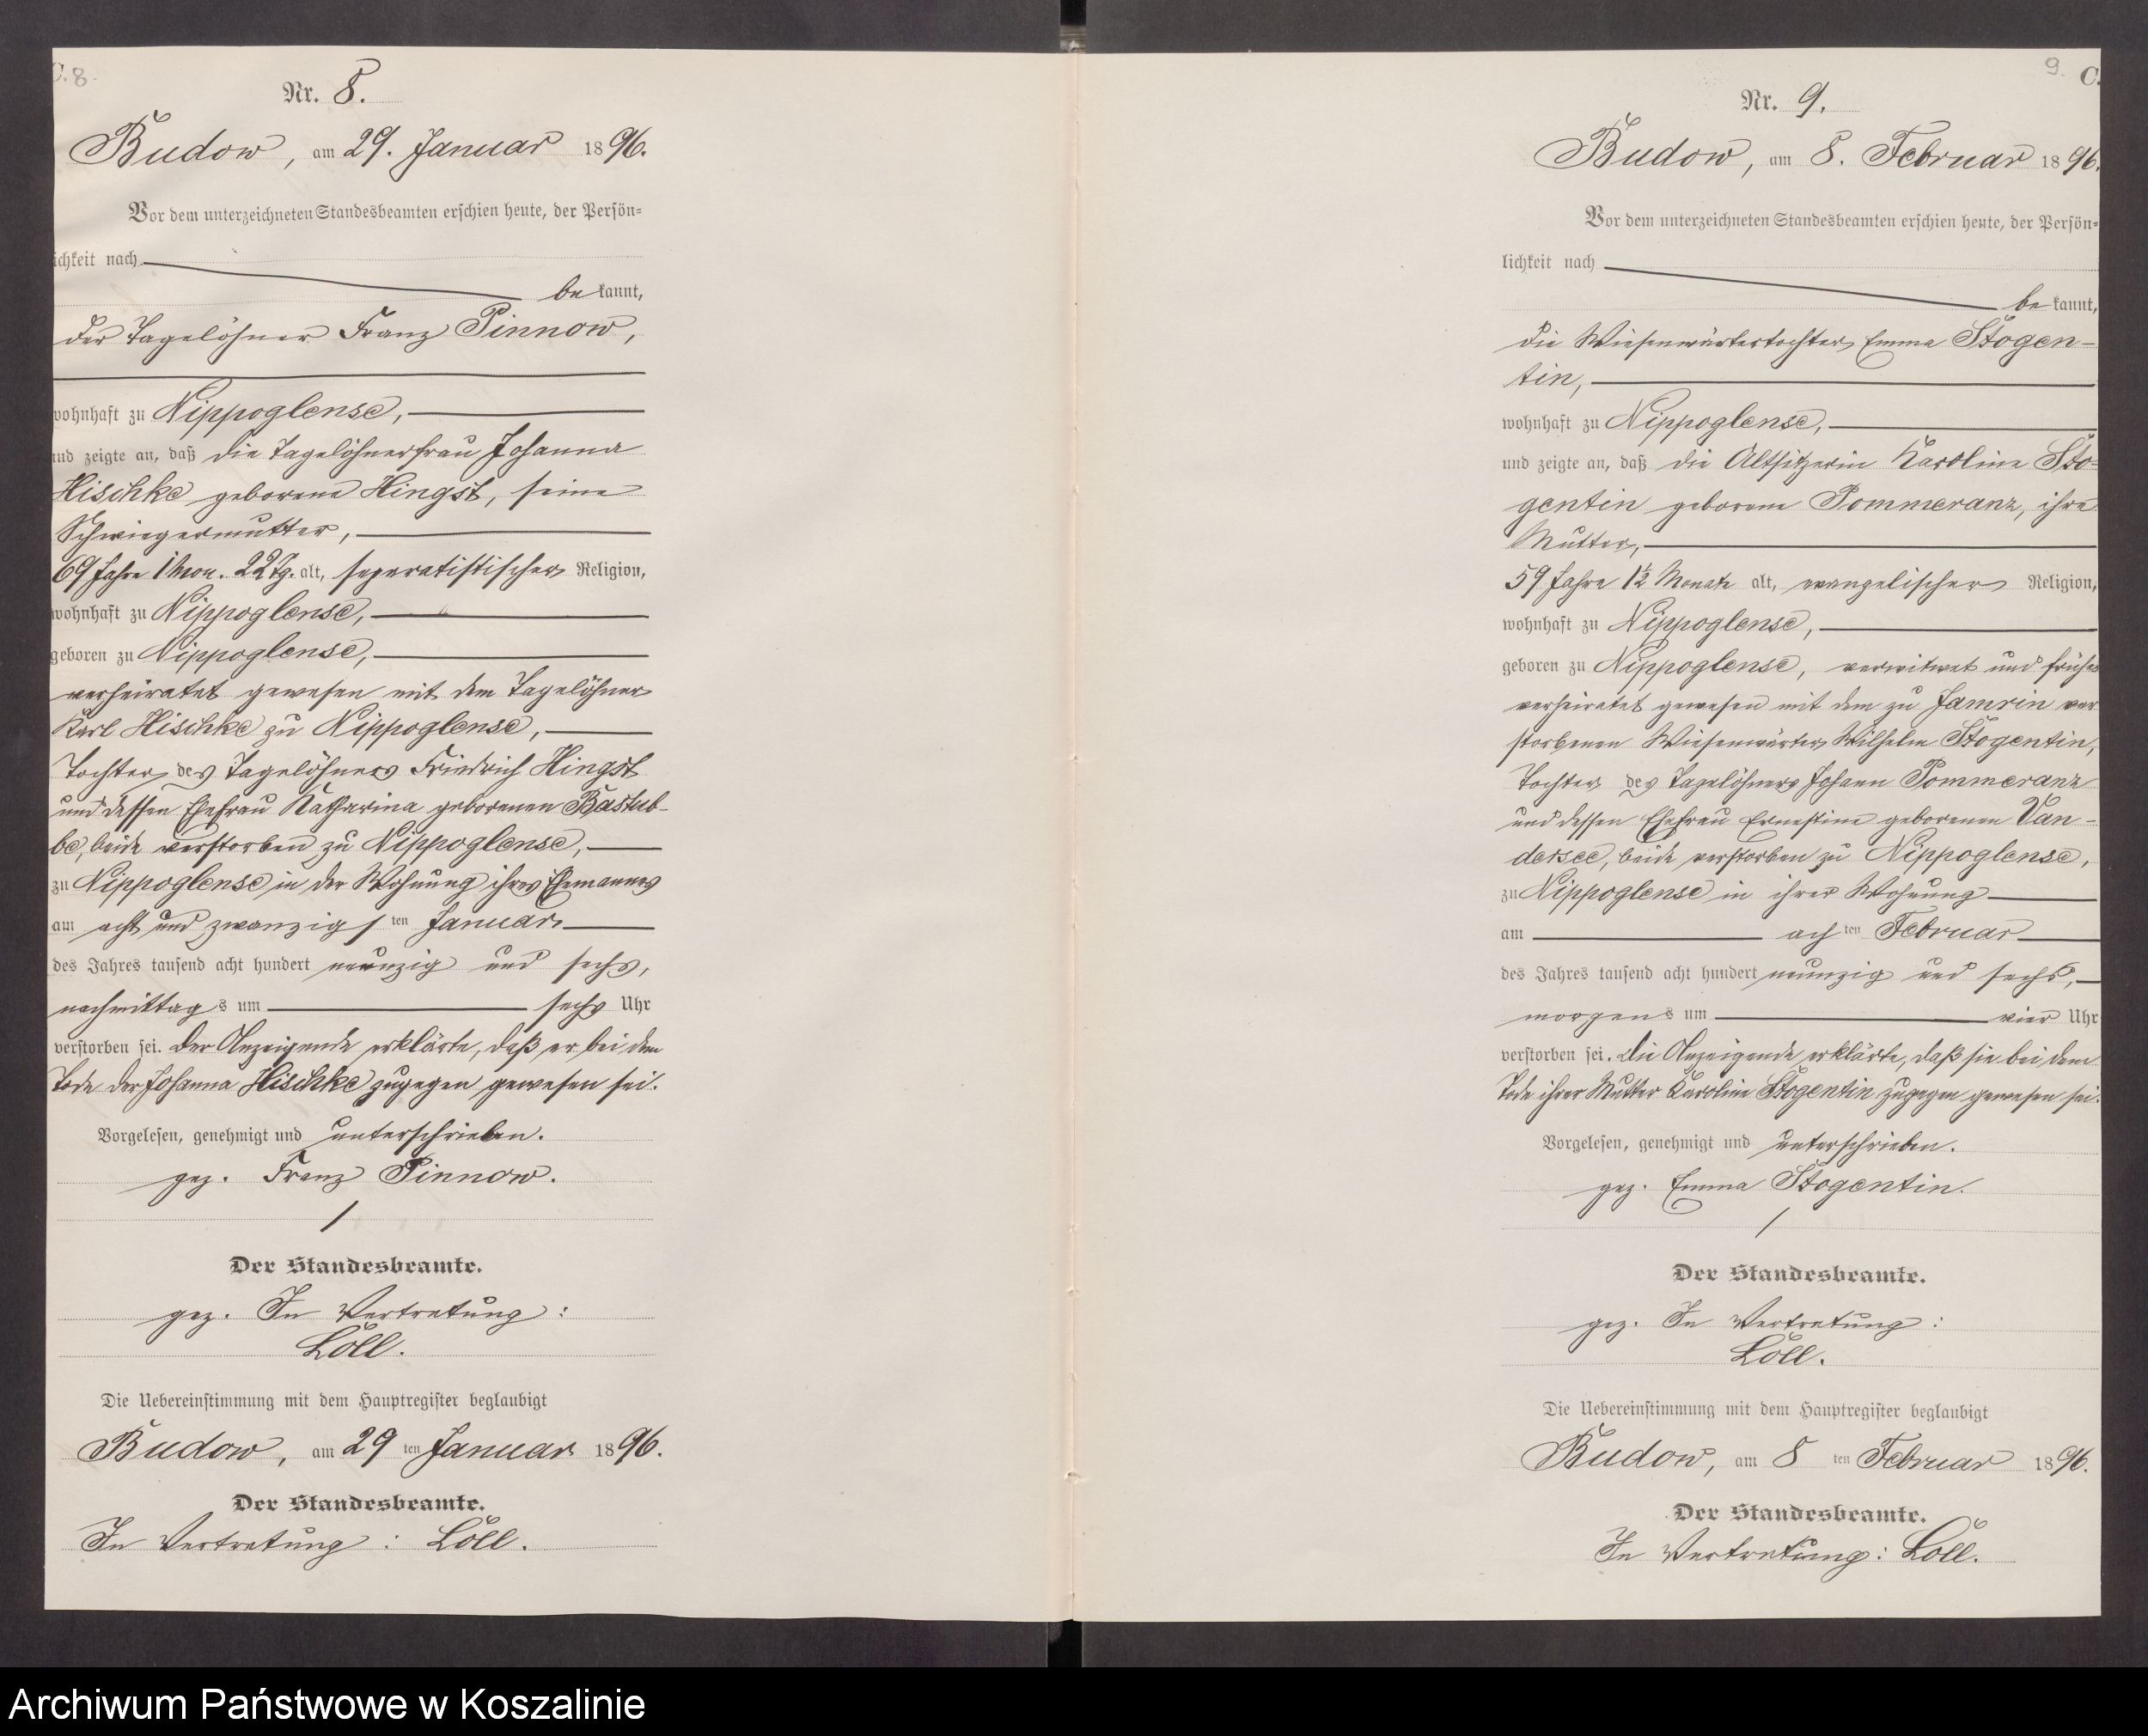 C. 8.
Nr. 8.
Budow, am 29. Januar 1896.
Vor dem unterzeichneten Standesbeamten erschien heute, der Persön=
lichkeit nach
be kannt,
der Tagelöhner Franz Pinnow,
wohnhaft zu Nippoglense,
und zeigte an, daß die Tagelöhnerfrau Johanna
Hischke geborene Hingst, seine
Schwiegermutter,
69 Jahre 1 Mon. 22 Tg. alt, separatistischer Religion,
wohnhaft zu Nippoglense,
geboren zu Nippoglense,
verheiratet gewesen mit dem Tagelöhner
Karl Hischke zu Nippoglense,
Tochter des Tagelöhners Friedrich Hingst
und dessen Ehefrau Katharina geborenen Bastub-
be, beide verstorben zu Nippoglense,
zu Nippoglense in der Wohnung ihres Ehemannes
am acht und zwanzigs ten Januar
des Jahres tausend acht hundert neunzig und sechs,
nachmittags um sechs Uhr
verstorben sei. Der Anzeigende erklärte, daß er bei dem
Tode der Johanna Hischke zugegen gewesen sei.
Vorgelesen, genehmigt und unterschrieben.
gez. Franz Pinnow.
Der Standesbeamte.
gez. In Vertretung:
Löll.
Die Uebereinstimmung mit dem Hauptregister beglaubigt
Budow, am 29 ten Januar 1896.
Der Standesbeamte.
In Vertretung: Löll.
9. C.
Nr. 9.
Budow, am 8. Februar 1896.
Vor dem unterzeichneten Standesbeamten erschien heute, der Persön=
lichkeit nach
be kannt,
die Wiesenwärtertochter Emma Stogen-
tin,
wohnhaft zu Nippoglense,
und zeigte an, daß die Altsitzerin Karoline Sto-
gentin geborene Pommeranz, ihre
Mutter,
59 Jahre 1½ Monate alt, evangelischer Religion,
wohnhaft zu Nippoglense,
geboren zu Nippoglense, verwitwet und früher
verheiratet gewesen mit dem zu Jamrin ver
storbenen Wiesenwärter Wilhelm Stogentin,
Tochter des Tagelöhners Johann Pommeranz
und dessen Ehefrau Ernestine geborenen Van-
dersee, beide verstorben zu Nippoglense,
zu Nippoglense in ihrer Wohnung
am ach ten Februar
des Jahres tausend acht hundert neunzig und sechs,
morgens um vier Uhr
verstorben sei. Die Anzeigende erklärte, daß sie bei dem
Tode ihrer Mutter Karoline Stogentin zugegen gewesen sei.
Vorgelesen, genehmigt und unterschrieben.
gez. Emma Stogentin.
Der Standesbeamte.
gez. In Vertretung:
Löll.
Die Uebereinstimmung mit dem Hauptregister beglaubigt
Budow, am 8 ten Februar 1896.
Der Standesbeamte.
In Vertretung: Löll.
Archiwum Państwowe w Koszalinie